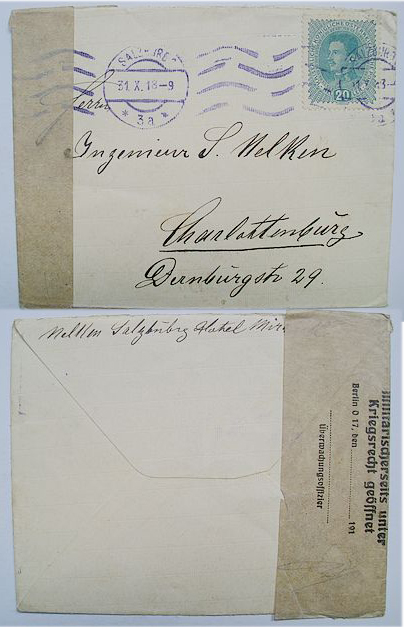 SALZBURG 2
31.X.18-9
* 3a *
20
Herrn
Ingenieur S. Nelken
Charlottenburg
Dernburgstr 29.
Nelken Salzburg Hotel Mira
Militärischerseits unter
Kriegsrecht geöffnet
Berlin O 17, den 191
Überwachungsoffizier